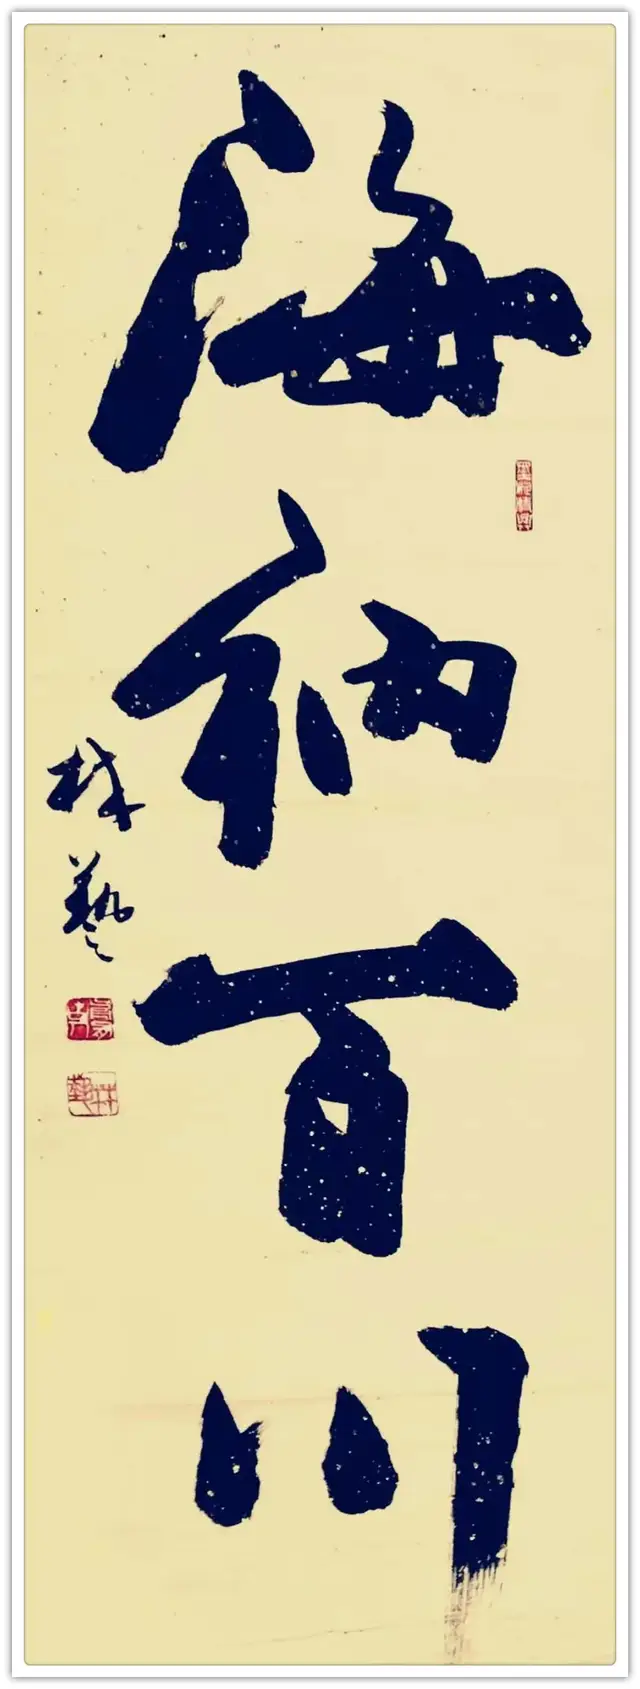 海纳百川
林艺